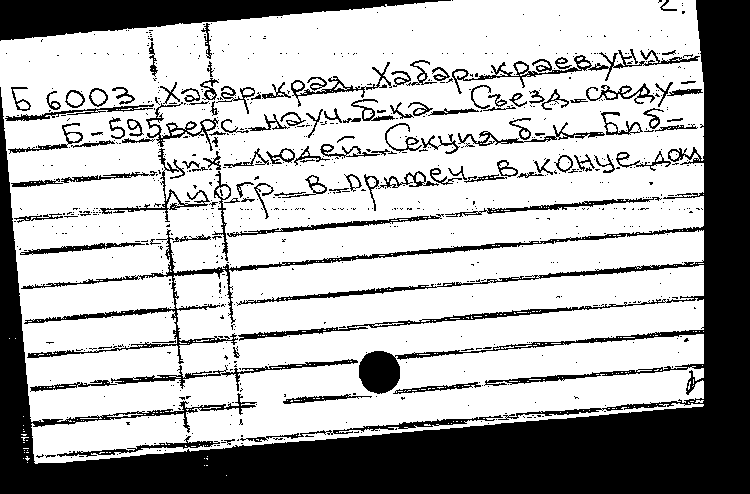 2.
Б 6003 Хабар. края, Хабар. краев. уни-
Б-595 верс. науч. б-ка. Съезд сведу-
щих людей. Секция б-к. Биб-
лиогр. в примеч. в конце докл